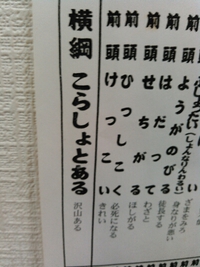 ざまをみろ
(しょんなりわるい) 身なりが悪い
前頭 ようがのびる 徒長する
前頭 はだって わざと
前頭 せちがる ほしがる
前頭 ひっしこく 必死になる
前頭 けっこい きれい
横綱 こらしょとある 沢山ある